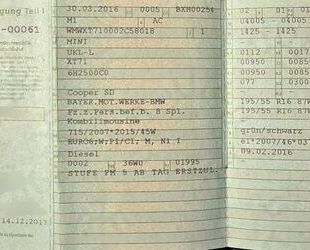 gung Teil I
-00061
14.12.201
30.03.2016 0005 BXH00254
M1 AC
1
MINI
UKL-L
XT71
6H2500C0
Cooper SD
BAYER.MOT.WERKE-BMW
Fz.z.Pers.bef.b. 8 Spl.
Kombilimousine
715/2007*2015/45W
EURO6;W;PI/CI; M, N1 I
Diesel
0002 36W0 01995
STUFE PM 5 AB TAG ERSTZUL.
02 01
04005 - 04005
1425 - 1425
0112
00950 0085
00950 0085
077 0300
195/55 R16 87
195/55 R16 87
grün/schwarz
61*2007/46*03
09.02.2016